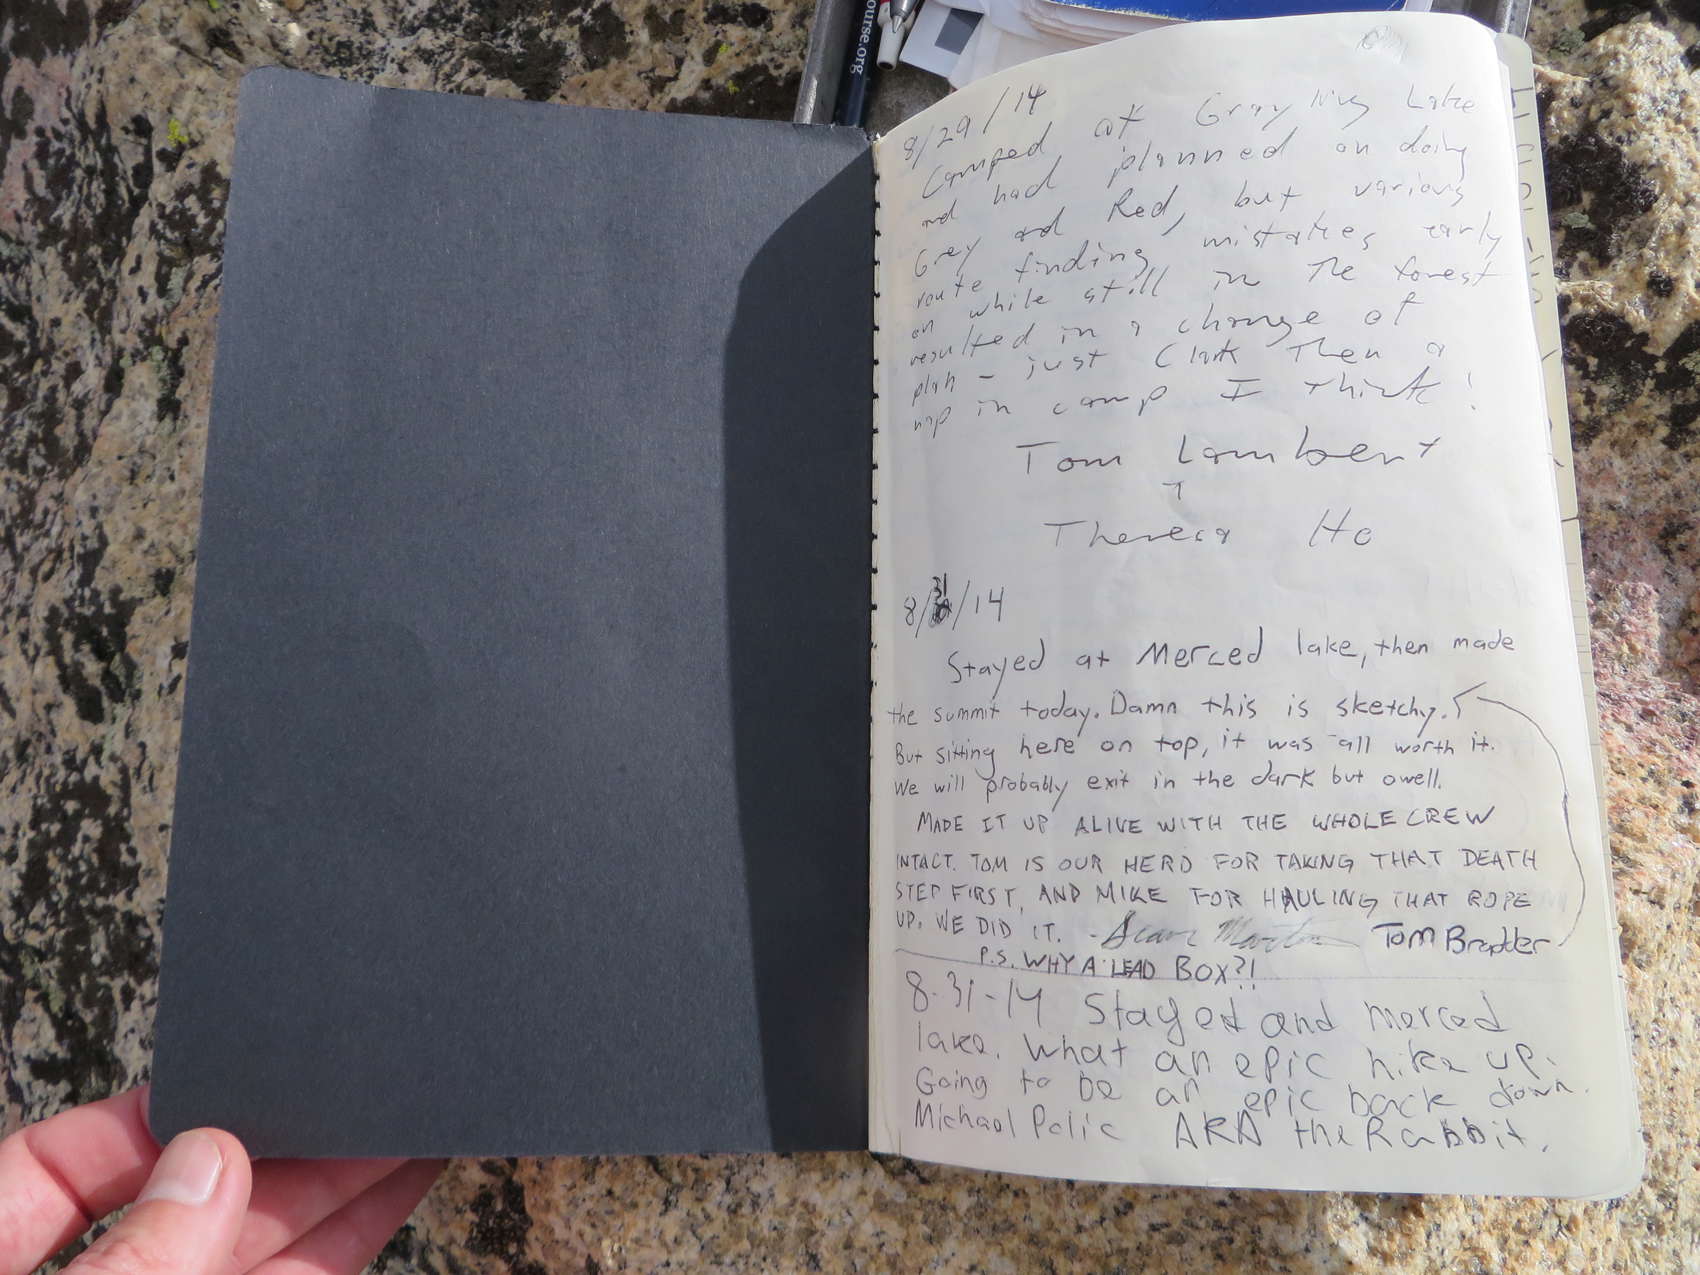 ourse.org
8/29/14
Camped at Grayling Lake
and had planned on doing
Grey and Red, but various
route finding mistakes early
on while still in the forest
resulted in a change of
plan - just Clark then a
nap in camp I think!
Tom Lambert
+
Theresa Ho
8/31/14
Stayed at Merced lake, then made
the summit today. Damn this is sketchy.
But sitting here on top, it was all worth it.
We will probably exit in the dark but owell.
MADE IT UP ALIVE WITH THE WHOLE CREW
INTACT. TOM IS OUR HERO FOR TAKING THAT DEATH
STEP FIRST, AND MIKE FOR HAULING THAT ROPE
UP. WE DID IT. - Tom
P.S. WHY A LEAD BOX?!
8-31-14 Stayed and merced
lake. What an epic hike up.
Going to be an epic back down.
Michael AKA the Rabbit.